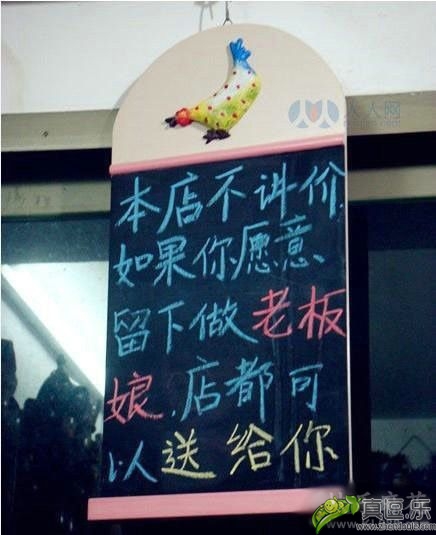 人人网
本店不讲价
如果你愿意
留下做老板
娘.店都可
以送给你
真逗.乐